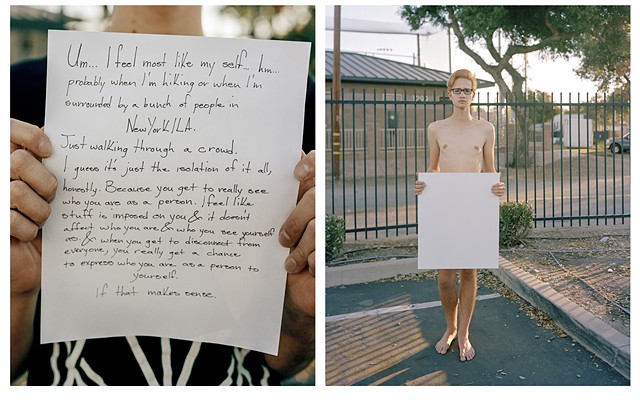 Um... I feel most like my self... hm...
probably when I'm hiking or when I'm
surrounded by a bunch of people in
New York/LA.
Just walking through a crowd.
I guess it's just the isolation of it all,
honestly. Because you get to really see
who you are as a person. I feel like
stuff is imposed on you & it doesn't
affect who you are & who you see yourself
as. & when you get to disconnect from
everyone, you really get a chance
to express who you are as a person to
yourself.
If that makes sense.